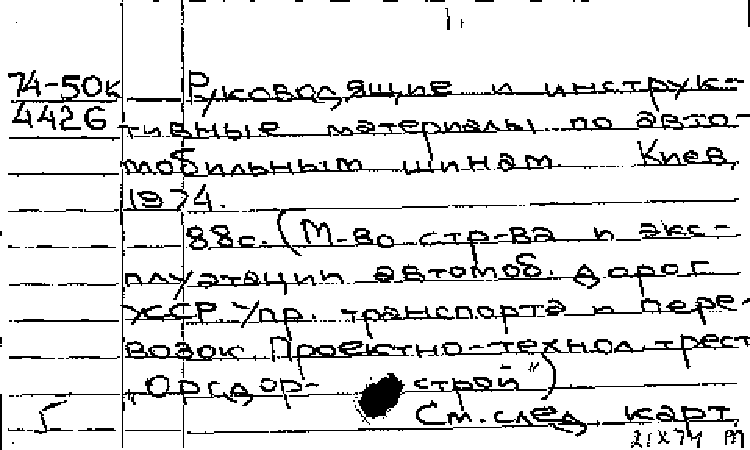 74-50к Руководящие и инструк-
4426 тивные материалы по авто-
мобильным шинам. Киев,
1974.
88с. (М-во стр-ва и экс-
плуатации автомоб. дорог
УССР. Упр. транспорта и пере-
возок. Проектно-технол. трест
"Оргдор- строй")
См. след. карт.
21 X 74